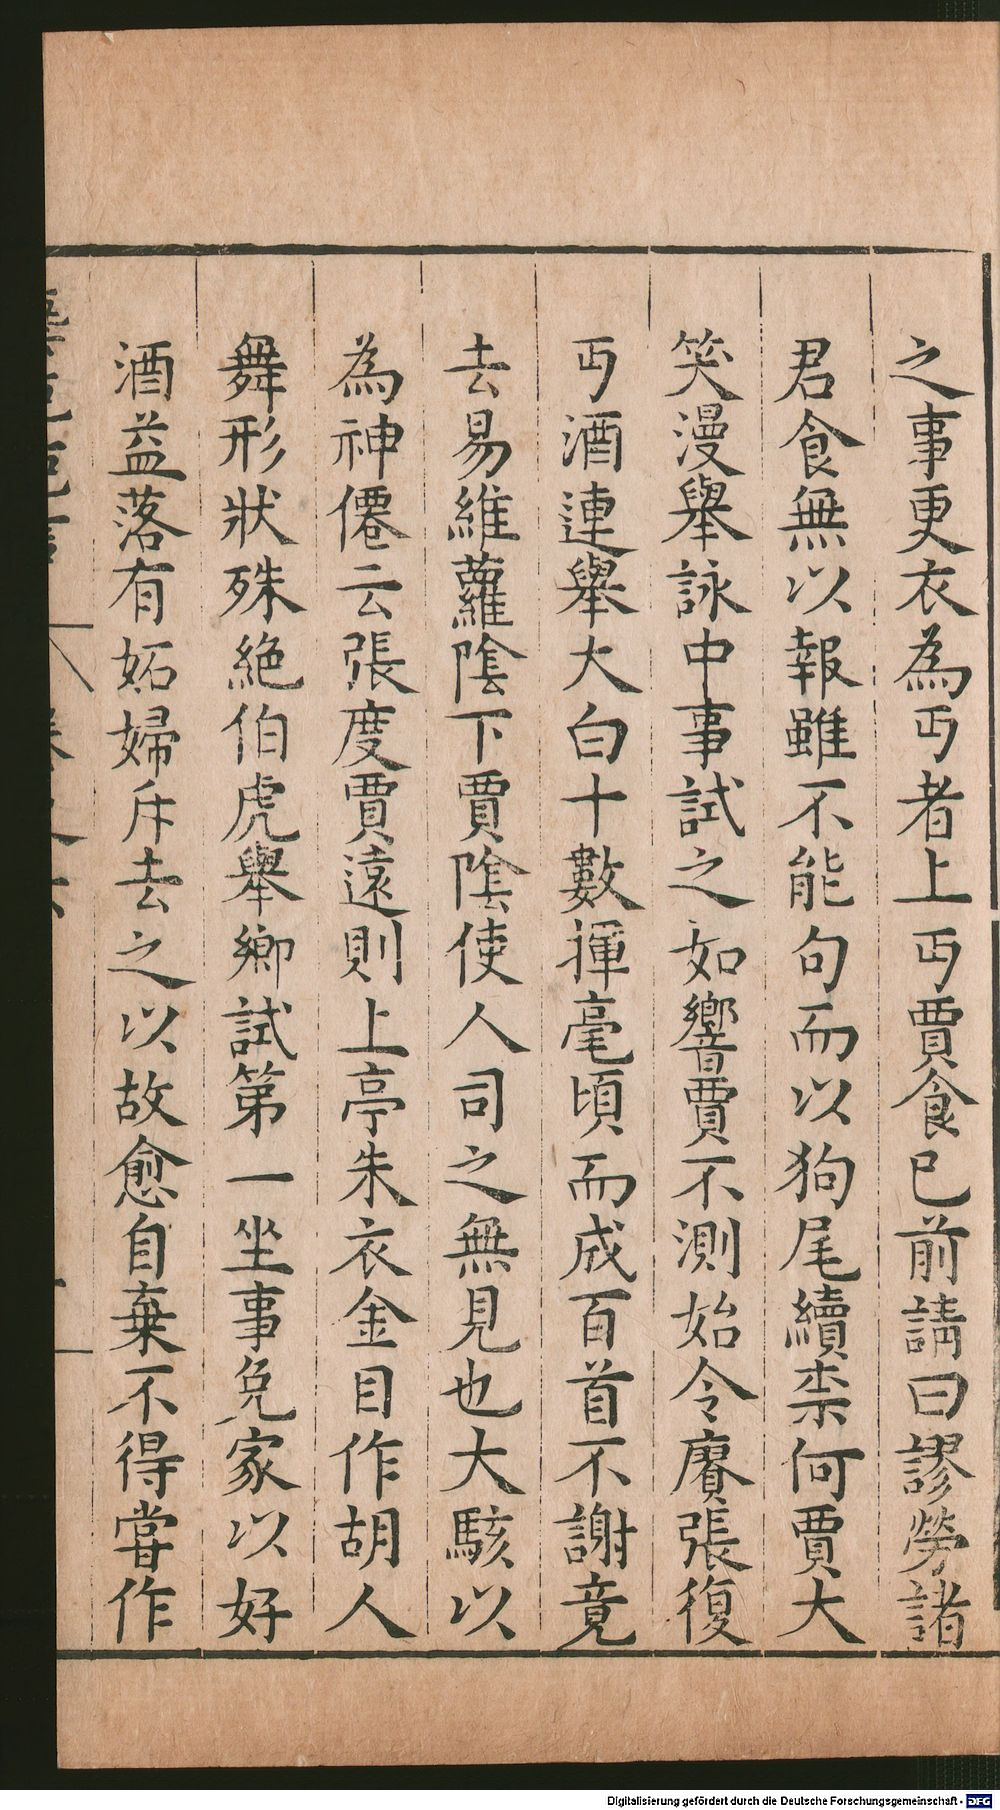 之事更衣為丐者上丐賈食已前請曰謬勞諸
君食無以報雖不能句而以狗尾續柰何賈大
笑漫舉詠中事試之如響賈不測始令賡張復
丐酒連舉大白十數揮毫頃而成百首不謝竟
去易維蘿陰下賈陰使人司之無見也大駭以
為神僊云張度賈遠則上亭朱衣金目作胡人
舞形狀殊絕伯虎舉鄉試第一坐事免家以好
酒益落有妬婦斥去之以故愈自棄不得嘗作
Digitalisierung gefördert durch die Deutsche Forschungsgemeinschaft - DFG